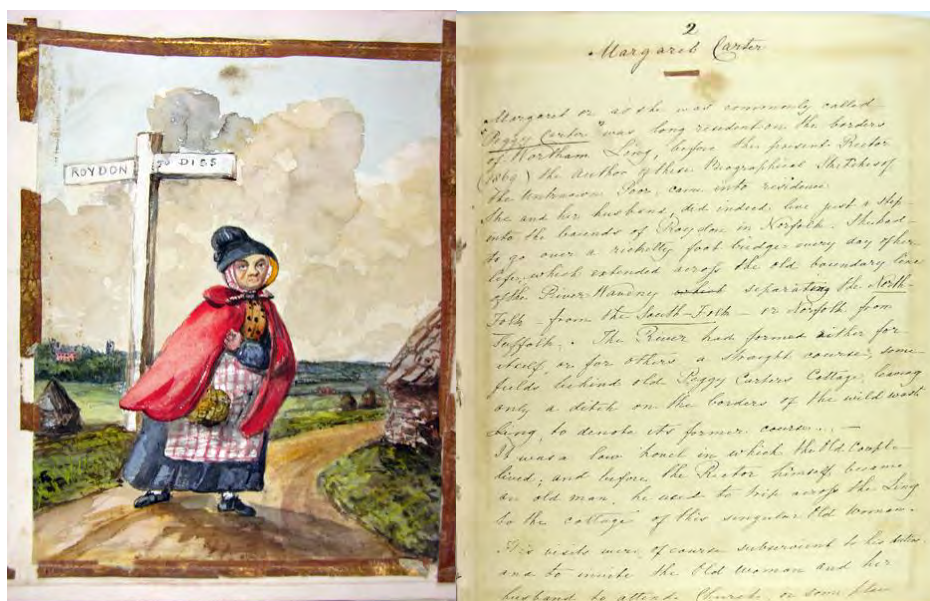 ROYDON
TO DISS
2
Margaret Carter
Margaret or as she was commonly called
"Peggy Carter" was long resident on the borders
of Wortham Ling, before the present Rector
(1869) the Author of these Biographical Sketches of
the Unknown Poor, came into residence.
She and her husband, did indeed, live just a step
into the bounds of Roydon in Norfolk. She had
to go over a ricketty foot bridge every day of her
life, which extended across the old boundary line
of the River Waveney separating the North-
Folk - from the South-Folk - or Norfolk from
Suffolk. The River had formed either for
itself, or for others a straight course, some
fields behind old Peggy Carters Cottage, leaving
only a ditch on the borders of the wild waste
Ling, to denote its former course. . . —
It was a low hovel in which the Old Couple
lived; and before the Rector himself, became
an old man, he used to trip across the Ling
to the cottage of this singular Old Woman.
His visits were of course subservient to his duties
and to invite the Old Woman and her
husband to attend Church, or some place